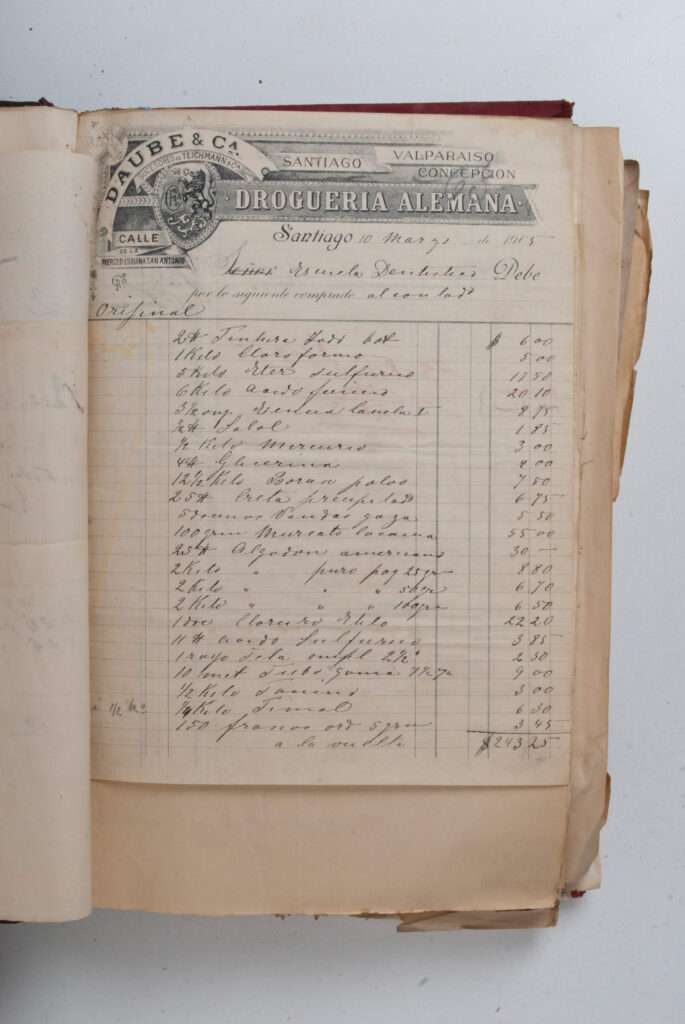 DAUBE & Cª
SUCESORES DE TEICHMANN & Cª
SANTIAGO VALPARAISO
CONCEPCION
DROGUERIA ALEMANA
CALLE
DE LA
MERCED ESQUINA SAN ANTONIO
Santiago 10 Marzo de 1905
Señor Escuela Dentistica Debe
por lo siguiente comprado al contado
Original
2 # Tintura Iodo bot $ 6 00
1 Kilo Cloroformo 5 00
5 Kilo Eter sulfurico 17 50
6 Kilo acido fenico 20 10
3½ onz Esencia 8 75
½ # Salol 1 85
½ Kilo Mercurio 3 00
4 # Glicerina 4 00
12½ Kilo Borax polvo 7 50
25 # Creta precipitado 6 75
5 docenas Vendas gaza 5 50
100 grm Muriato cocaina 55 00
25 # Algodon americano 30 —
2 Kilo " puro paq 25 grm 8 80
2 Kilo " " " 50 gr 6 70
2 Kilo " " " 100 grm 6 50
1 doc Cloruro Etilo 22 20
11 # acido Sulfurico 3 85
1 rayo Tela empl 2½ 2 30
10 met Tubo goma 9 00
½ Kilo Tanino 3 00
¼ Kilo Timol 6 30
150 frascos ord 5 grm 3 45
a la vuelta $ 243 25